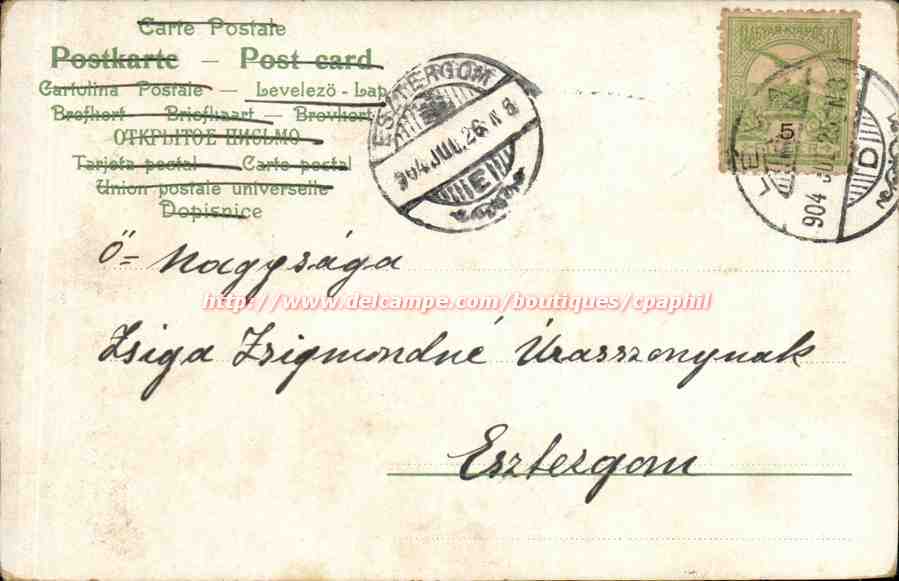 Carte Postale
Postkarte – Post card
Cartolina Postale – Levelező-Lap
Brefkort – Briefkaart – Brevkort
ОТКРЫТОЕ ПИСЬМО
Tarjeta postal – Carte postal
Union postale universelle
Dopisnice
ESZTERGOM
904 JUL. 26. N 8
E
MAGYAR KIR. POSTA
5
904 JUL
D
Ő= Nagysága
http://www.delcampe.com/boutiques/cpaphil
Zsiga Zsigmondné Úrasszonynak
Esztergom